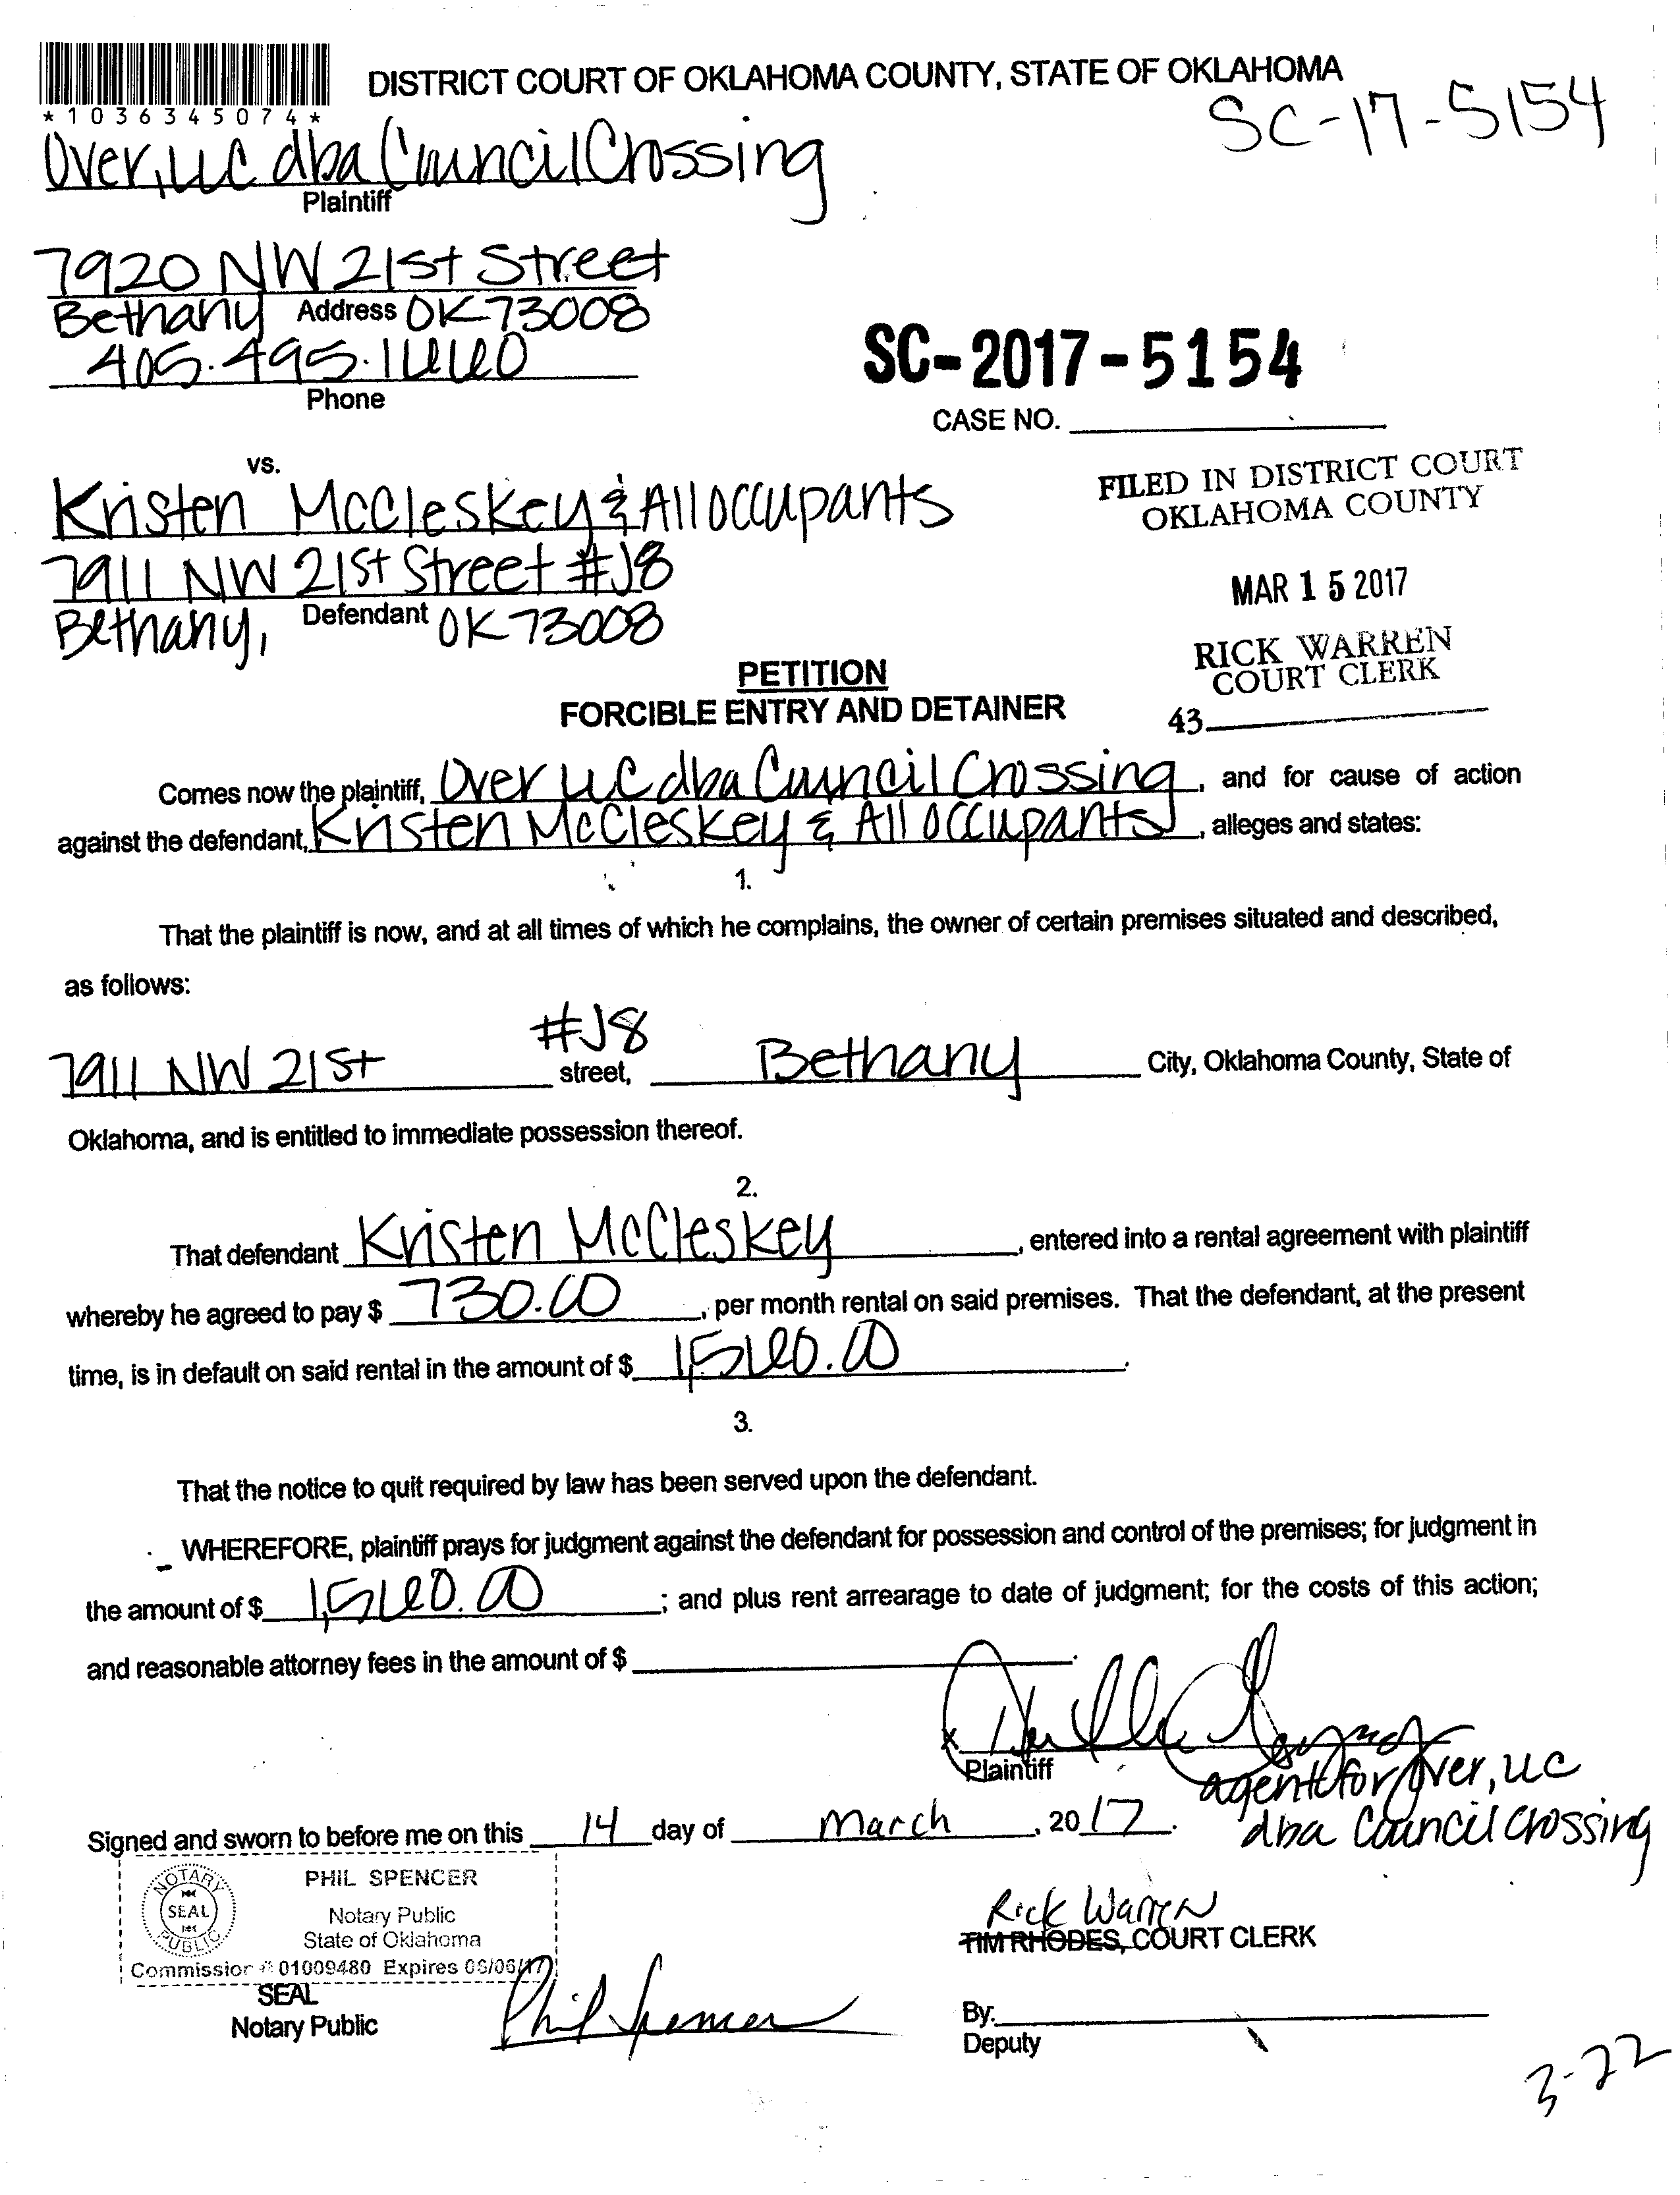 DISTRICT COURT OF OKLAHOMA COUNTY, STATE OF OKLAHOMA
*1036345074*
SC-17-5154
Over, LLC dba Council Crossing
Plaintiff
7920 NW 21st Street
Bethany Address OK 73008
405.495.1660
Phone
SC-2017-5154
CASE NO.
vs.
Kristen McCleskey & All occupants
7911 NW 21st Street #J8
Bethany, Defendant OK 73008
FILED IN DISTRICT COURT
OKLAHOMA COUNTY
MAR 15 2017
RICK WARREN
COURT CLERK
43
PETITION
FORCIBLE ENTRY AND DETAINER
Comes now the plaintiff, Over LLC dba Council Crossing, and for cause of action
against the defendant, Kristen McCleskey & All Occupants, alleges and states:
1.
That the plaintiff is now, and at all times of which he complains, the owner of certain premises situated and described,
as follows:
#J8
7911 NW 21st street, Bethany City, Oklahoma County, State of
Oklahoma, and is entitled to immediate possession thereof.
2.
That defendant Kristen McCleskey, entered into a rental agreement with plaintiff
whereby he agreed to pay $ 730.00, per month rental on said premises. That the defendant, at the present
time, is in default on said rental in the amount of $ 1,560.00.
3.
That the notice to quit required by law has been served upon the defendant.
WHEREFORE, plaintiff prays for judgment against the defendant for possession and control of the premises; for judgment in
the amount of $ 1,560.00; and plus rent arrearage to date of judgment; for the costs of this action;
and reasonable attorney fees in the amount of $
x
Plaintiff
agent for Over, LLC
dba Council Crossing
Signed and sworn to before me on this 14 day of March, 2017.
NOTARY PUBLIC
SEAL
PHIL SPENCER
Notary Public
State of Oklahoma
Commission # 01009480 Expires
SEAL
Notary Public
Phil Spencer
Rick Warren
TIM RHODES, COURT CLERK
By:
Deputy
3-22